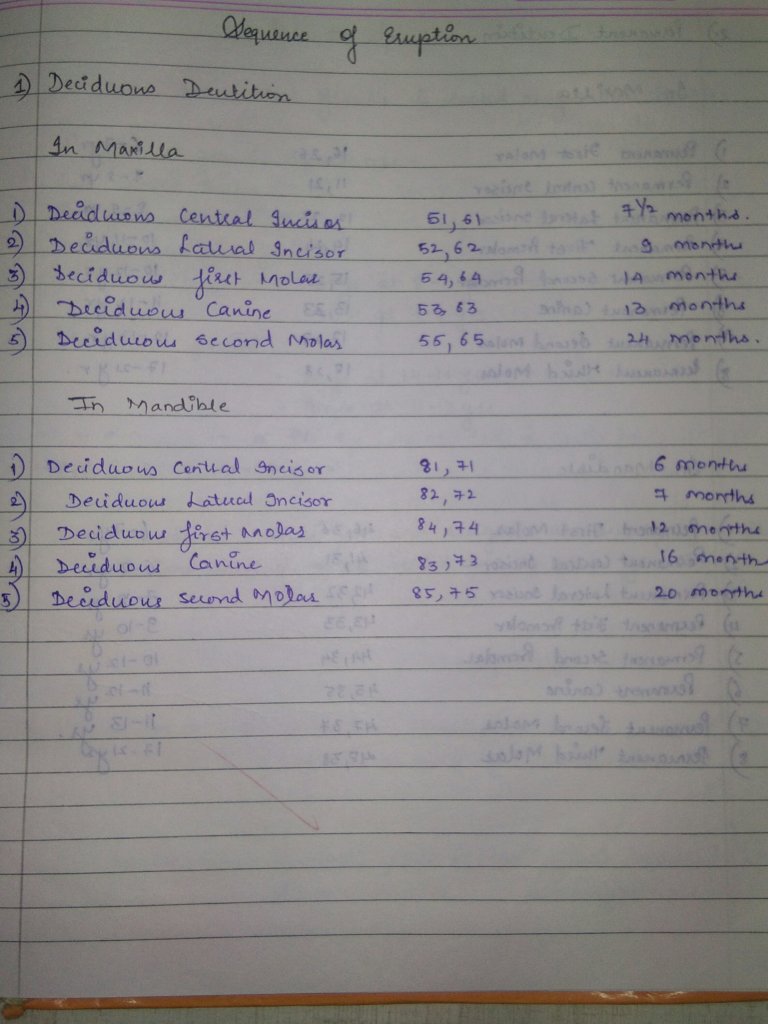 Sequence of Eruption
1) Deciduous Dentition
In Maxilla
1) Deciduous Central Incisor 51, 61 7 1/2 months.
2) Deciduous Lateral Incisor 52, 62 9 months
3) Deciduous first Molar 54, 64 14 months
4) Deciduous Canine 53, 63 13 months
5) Deciduous second Molar 55, 65 24 months.
In Mandible
1) Deciduous Central Incisor 81, 71 6 months
2) Deciduous Lateral Incisor 82, 72 7 months
3) Deciduous first Molar 84, 74 12 months
4) Deciduous Canine 83, 73 16 months
5) Deciduous second Molar 85, 75 20 months